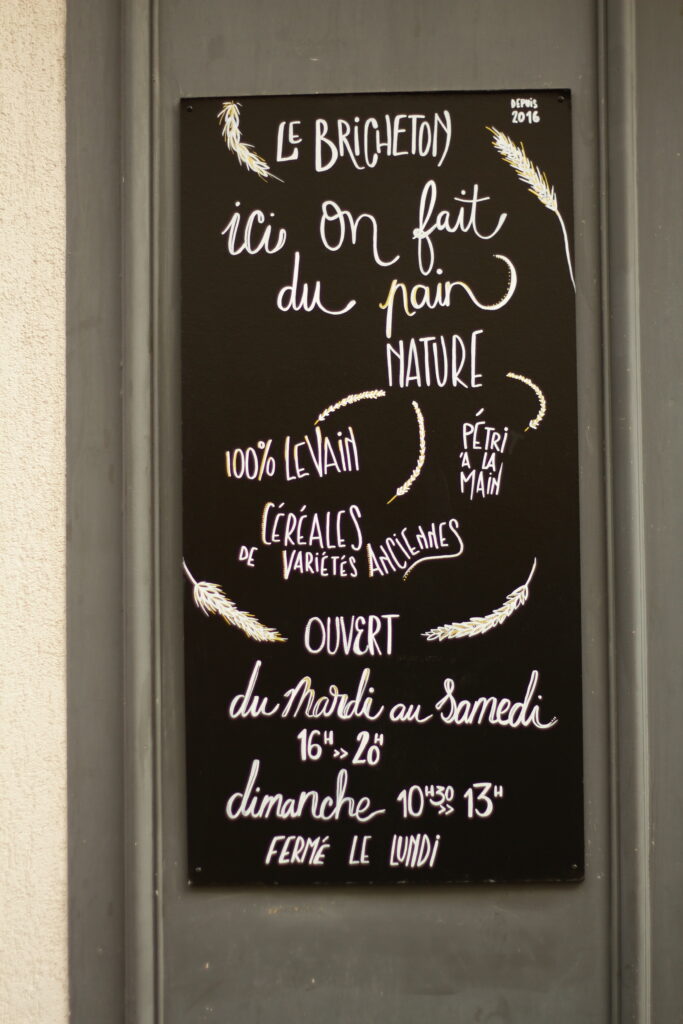 LE BRICHETON
DEPUIS
2016
ici on fait
du pain
NATURE
100% LEVAIN
PÉTRI
À LA
MAIN
CÉRÉALES
DE VARIÉTÉS ANCIENNES
OUVERT
du Mardi au Samedi
16H >> 20H
dimanche 10H30 >> 13H
FERMÉ LE LUNDI